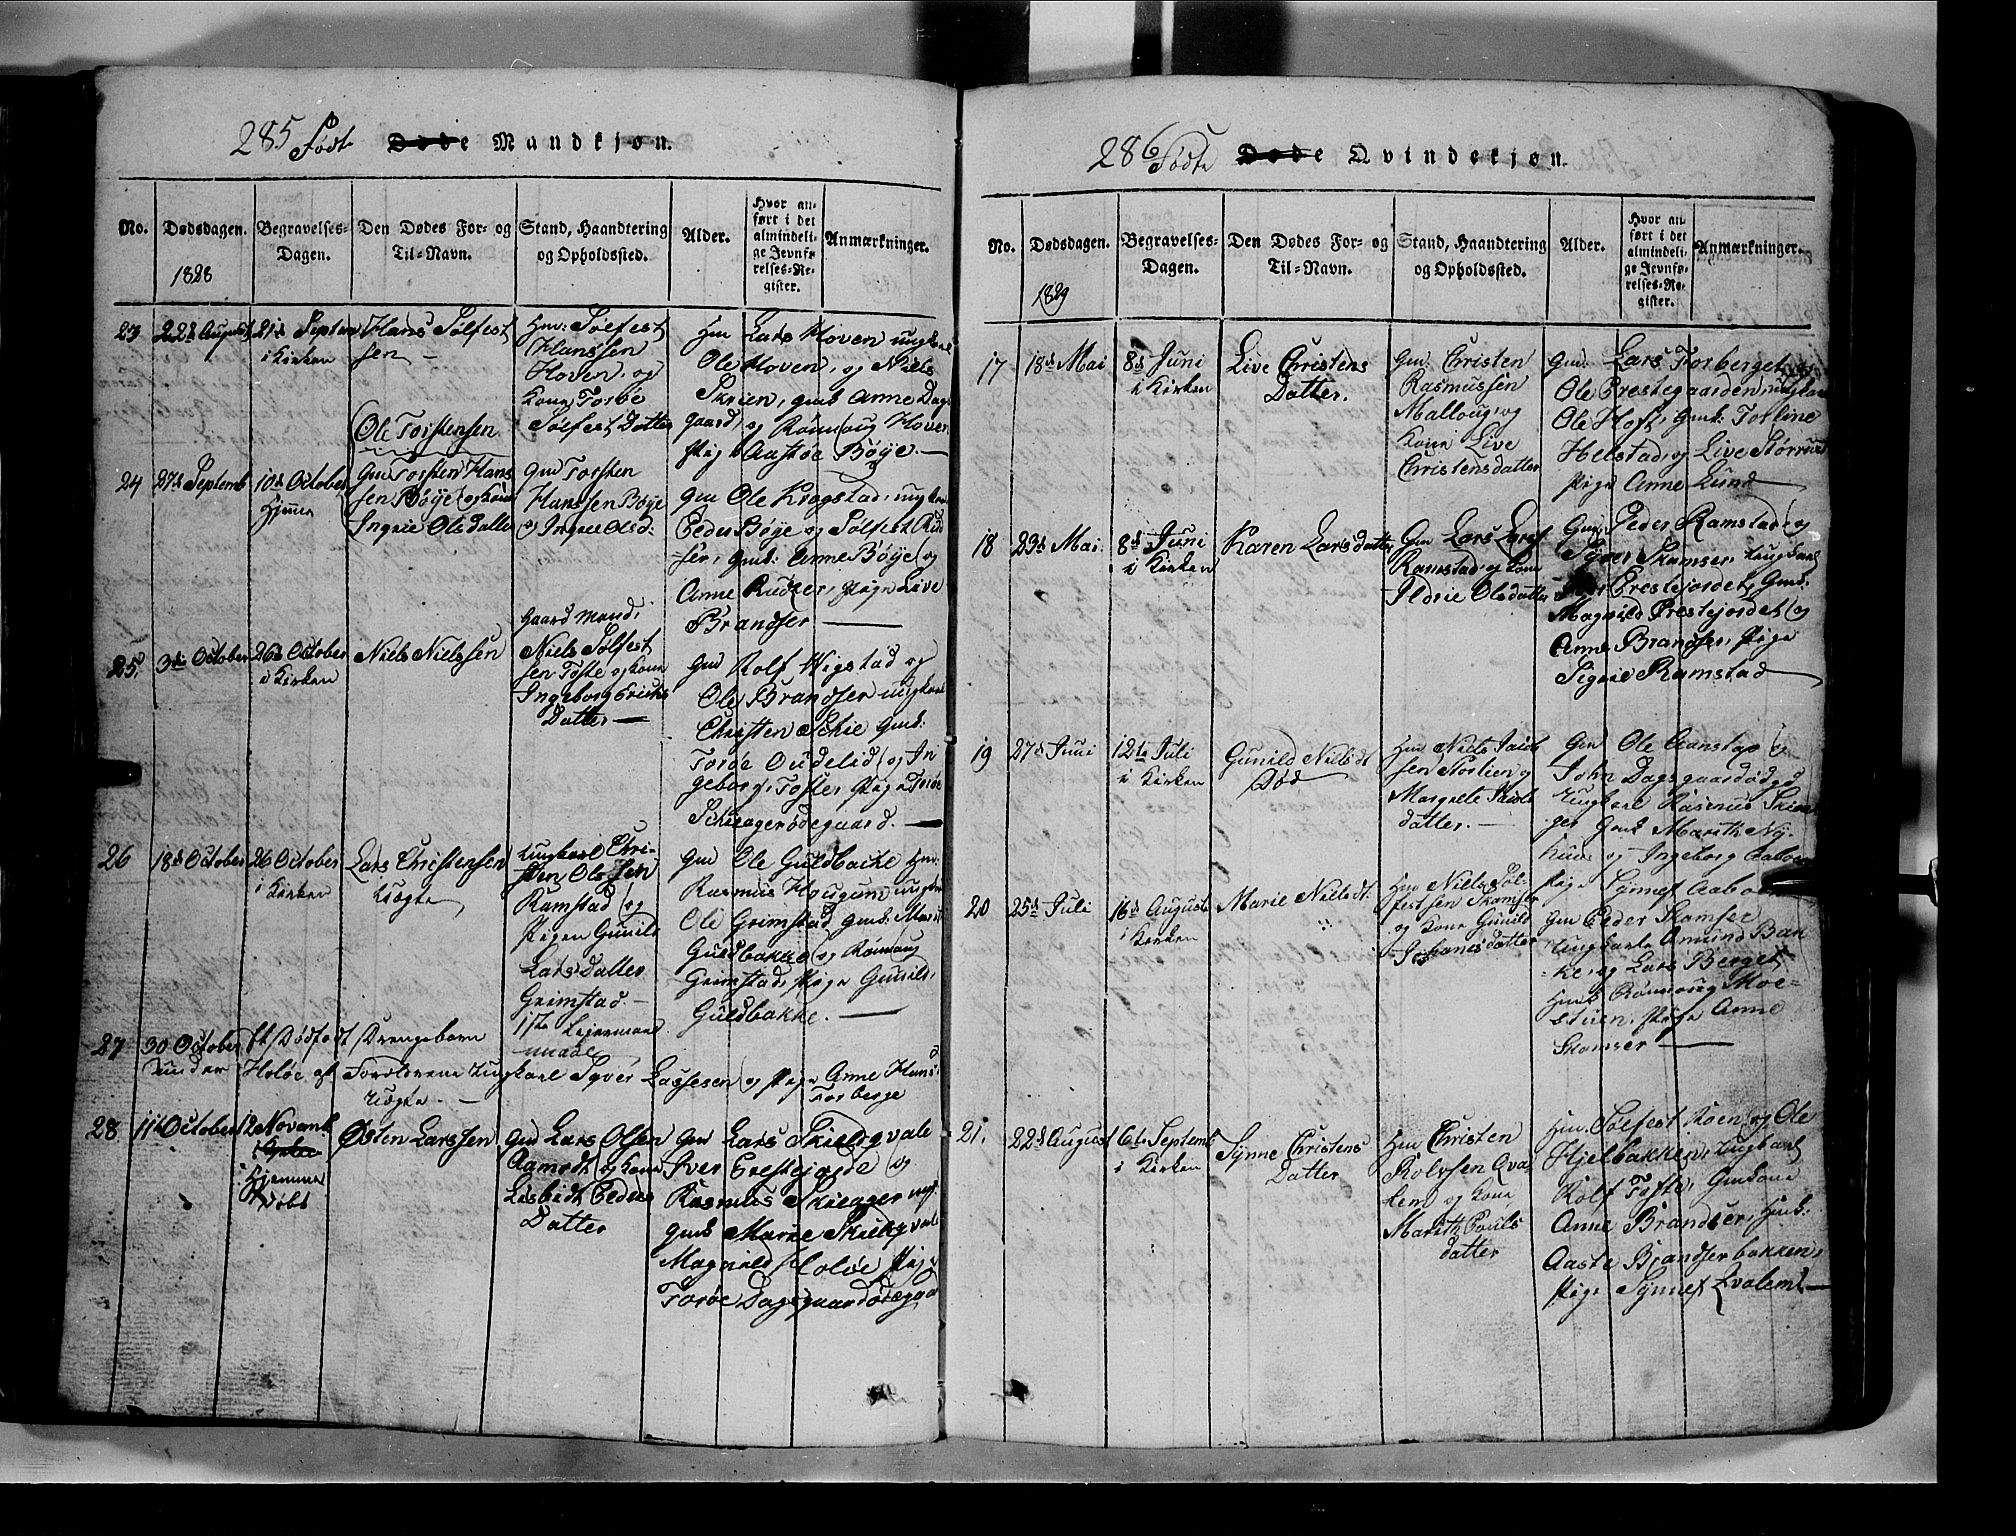 285 Födte Døde Mandkjøn.
No.
Dødsdagen.
1828
Begravelses-
Dagen.
Den Dødes For- og
Til-Navn.
Stand, Haandtering
og Opholdssted.
Alder.
Hvor an-
ført i det
almindeli-
ge Jevnfø-
relses-Re-
gister.
Anmærkninger.
23
22de August
21de Septem
i Kirken
Hans Sølfest
sen
Hm: Sølfest
Hanssen
Hoven og
Kone Torbe
Sølfest Datter
Hm Lars Hoven ungkarl
Ole Hoven, og Niels
Skrien, gmk Anne Dags
gaard, og Rønnoug Hoven
Pige Aastøe Bøye.
24
27de Septemb
10de October
Hjemme
Ole Torstensen
Gm Torsten Hans
sen Bøye og Kone
Ingrie Ole Datter
Gm Torsten
Hanssen Bøye
og Ingrie Olsd
Gm Ole Krogstad, ungkarl
Peder Bøye og Sølfest
ser, gmk: Anne Bøye og
Anne Rudser, Pige Live
Brandser
25.
3de October
26de October
i Kirken
Niels Nielssen
Gaard Mand
Niels Sølfest
sen Tofte og Kone
Ingeborg Erichs
Datter
Gm Rolf Wigstad og
Ole Brandser ungkarl
Christen Schie gmk:
Torøe Oudelid og In
geborg Tofte, Pige Torøe
Schieagerødegaard.
26
18de October
26 October
i Kirken
Lars Christensen
Uægte
Ungkarl Chri-
sten Olssen
Ramstad og
Pigen Gunild
Lars Datter
Grimstad.
1ste Leiermaal
Gm Ole Guldbacke Hm:
Rasmus Hougum ungkarl
Ole Grimstad gmk: Marit
Guldbakke og Rønnoug
Grimstad, Pige Gunild
Guldbakke.
27
30 October
under
Et Dødfødt Drengebarn
Holøe af Forældrene Ungkarl Syver Lassesen og Pige Anne Hans
Uægte
Forberge
28
11te October
12 Novemb
Hjemme
Døbt
Østen Larssen
Gm Lars Olsen
Aamodt og Kone
Lisbeth Peders
Datter
Gm Lars Skieldqvale
Iver Prestejorde og
Rasmus Skieager
gmk Marie Skieldqvale
Magnild Holøe Pige
Torøe Dagsgaardødegaa
286 Födte Døde Qvindekjøn.
No.
Dødsdagen.
1829
Begravelses-
Dagen.
Den Dødes For- og
Til-Navn.
Stand, Haandtering
og Opholdssted.
Alder.
Hvor an-
ført i det
almindeli-
ge Jevnfø-
relses-Re-
gister.
Anmærkninger.
17
18de Mai
8de Juni
i Kirken
Live Christens
Datter.
Gm: Christen
Rasmussen
Malloug og
Kone Live
Christensdatter
Gm: Lars Forberget
Ole Prestegaarden, ungkarl
Ole Hoft, gmk: Torline
Helstad, og Live Størrud
Pige Anne Lund
18
23de Mai
8de Juni
i Kirken
Karen Larsdatter
Gm Lars Lars
Ramstad og Kone
Ildrie Olsdatter
Gm: Peder Ramstad og
Syver Skamser, Ungkarl
Prestejordet, Gmk:
Magnild Prestejordet og
Anne Brandser, Pige
Sigrie Ramstad
19
27de Juni
12te Juli
i Kirken
Gunild Nielsdt
Død
Hm Niels Jacob
sen Storlien og
Margrete Jacobs
datter.
Gm Ole Aanstad og
John Dagsgaardødgd
Ungkarl Rasmus Skiea
ger Gmk Marith Ny-
huus og Ingeborg
Pige Synnef
20
25de Juli
16de August
i Kirken
Marie Nielsdt.
Hm Niels Søl
festsen Skamser
og Kone Gunild
Johanes datter
Gm Peder Skamser
Ungkarle Amund Bak
ke, og Lars Berget
Hmk Rønnoug Moe-
stuen. Pige Anne
Skamser
21.
22de August
6te Septemb
i Kirken
Synne Christens
Datter
Hm Christen
Rolvsen Qva
len og Kone
Marith Pouls
datter
Hm. Sølfest Roen og Ole
Hjelbakken, Ungkarl
Rolf Tofte, Gmkone
Anne Brandser, Hmk:
Aaste Brandserbakken,
Pige Synnef Qvalem